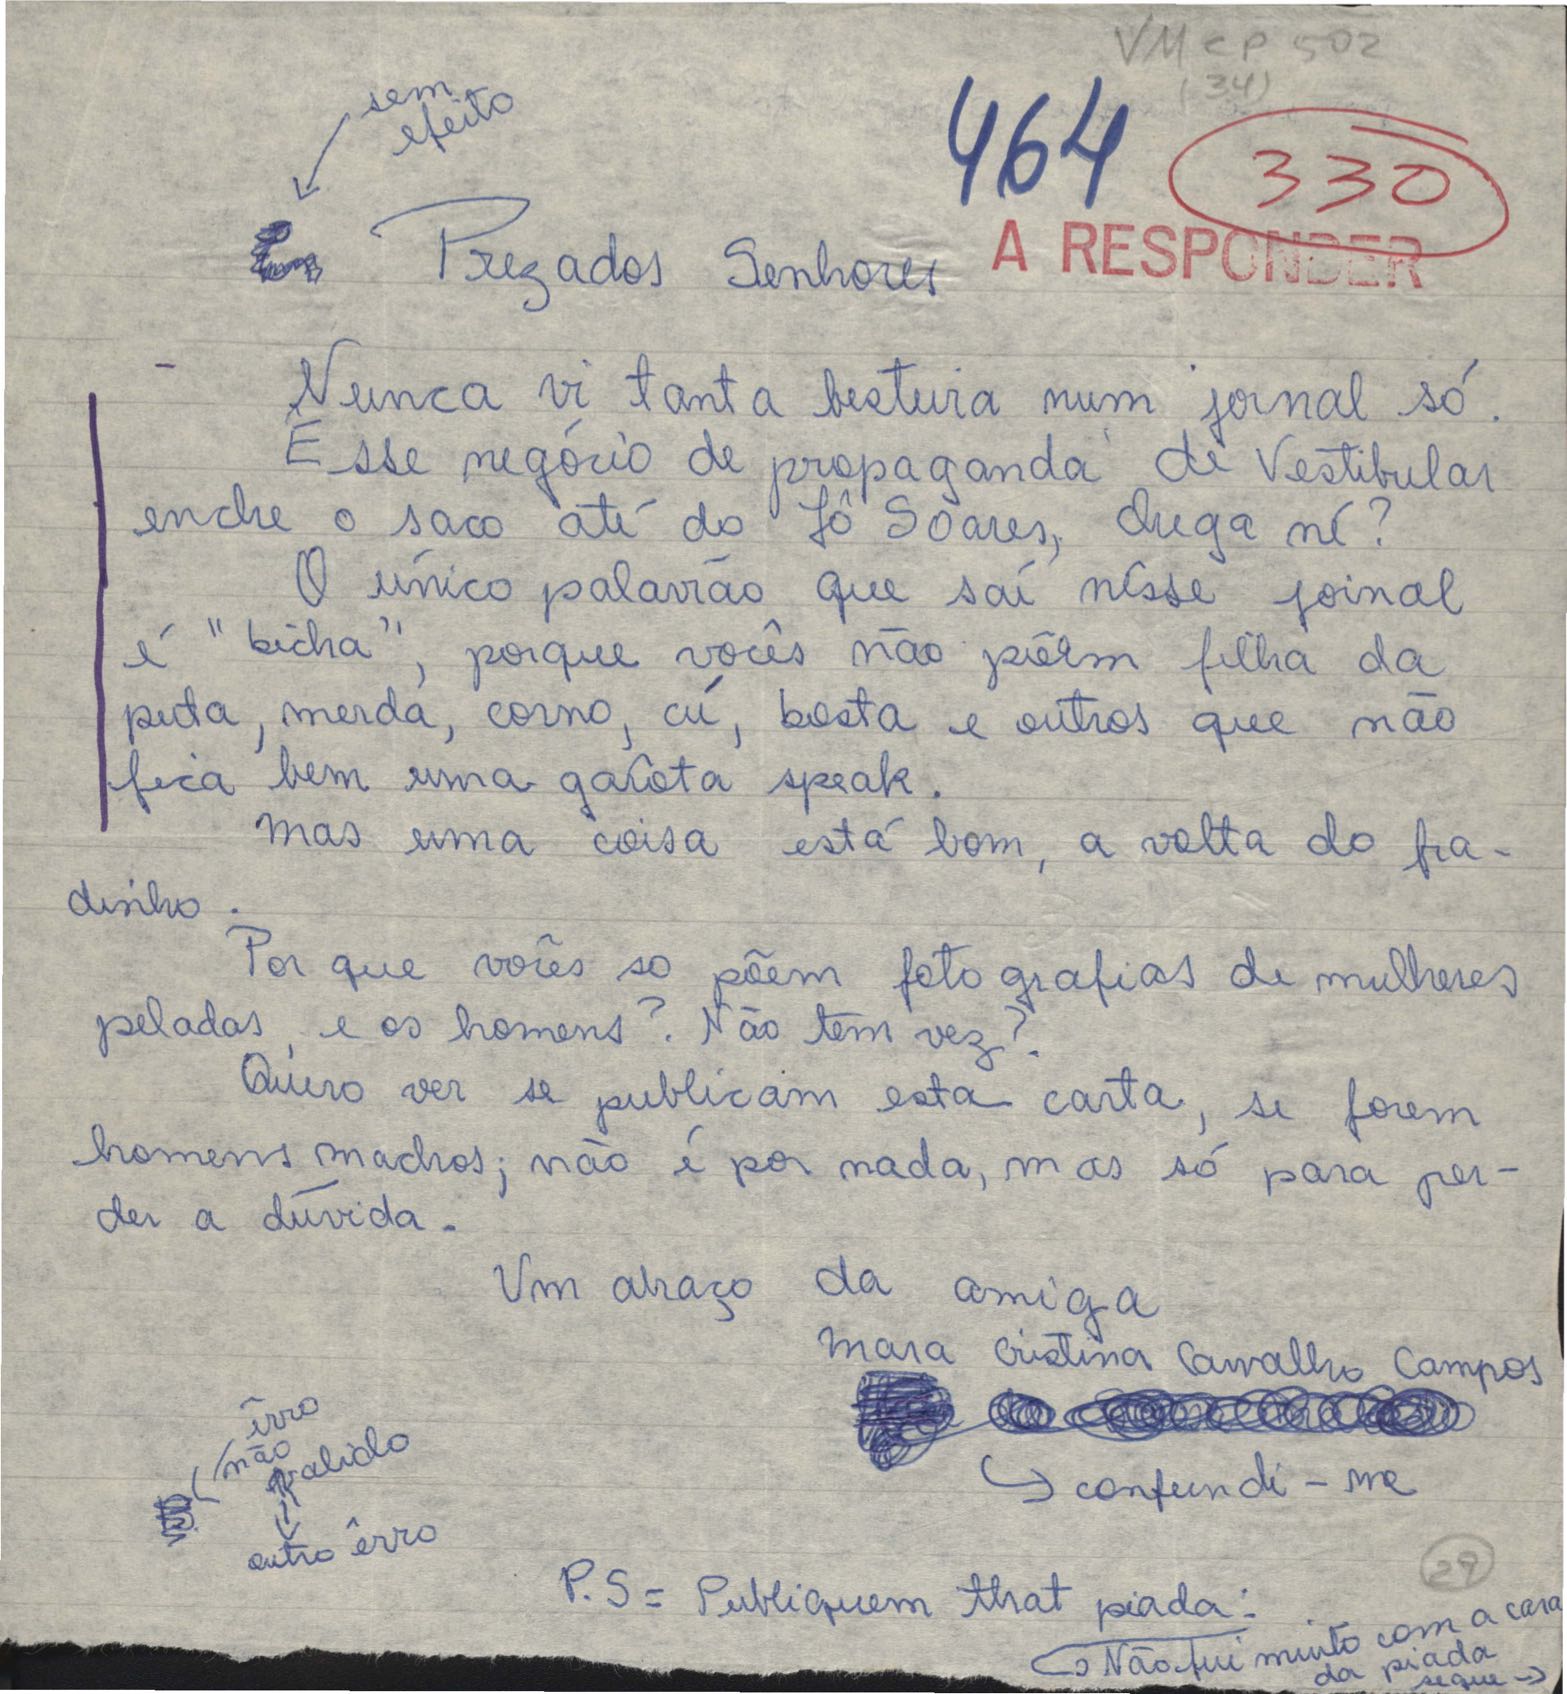 VM CP 502
(34)
sem
efeito
464
330
A RESPONDER
Prezados Senhores
Nunca vi tanta besteira num jornal só.
Esse negócio de propaganda de Vestibular
enche o saco até do Jô Soares, chega né?
O único palavrão que saí nêsse jornal
é "bicha", porque vocês não põem filha da
puta, merda, corno, cú, bosta e outros que não
fica bem uma garota speak.
Mas uma coisa está bom, a volta do fra-
dinho.
Por que vocês so põem fotografias de mulheres
peladas, e os homens? Não têm vez?
Quero ver se publicam esta carta, se forem
homens machos; não é por nada, mas só para per-
der a dúvida.
Um abraço da amiga
Mara Cristina Carvalho Campos
confundi-me
êrro
não
valido
outro êrro
29
P.S = Publiquem that piada:
Não fui muito com a cara
da piada
segue →